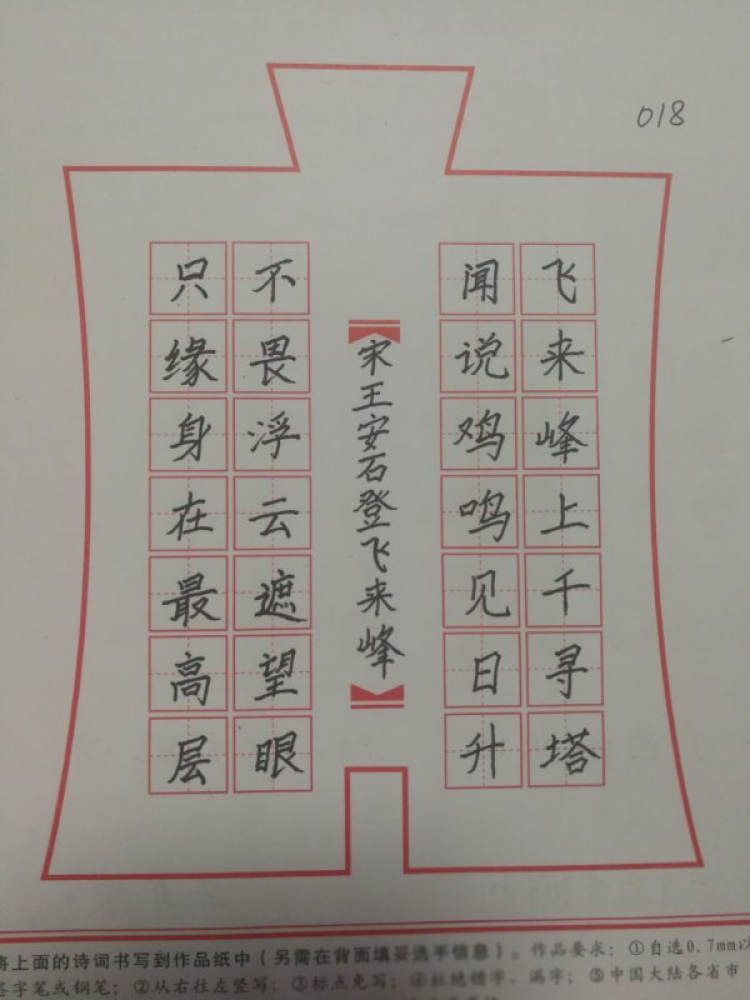 018
飞来峰上千寻塔
闻说鸡鸣见日升
宋王安石登飞来峰
不畏浮云遮望眼
只缘身在最高层
将上面的诗词书写到作品纸中（另需在背面填妥选手信息）。作品要求：①自选0.7mm以
签字笔或钢笔；②从右往左竖写；③标点免写；④杜绝错字、漏字；⑤中国大陆各省市